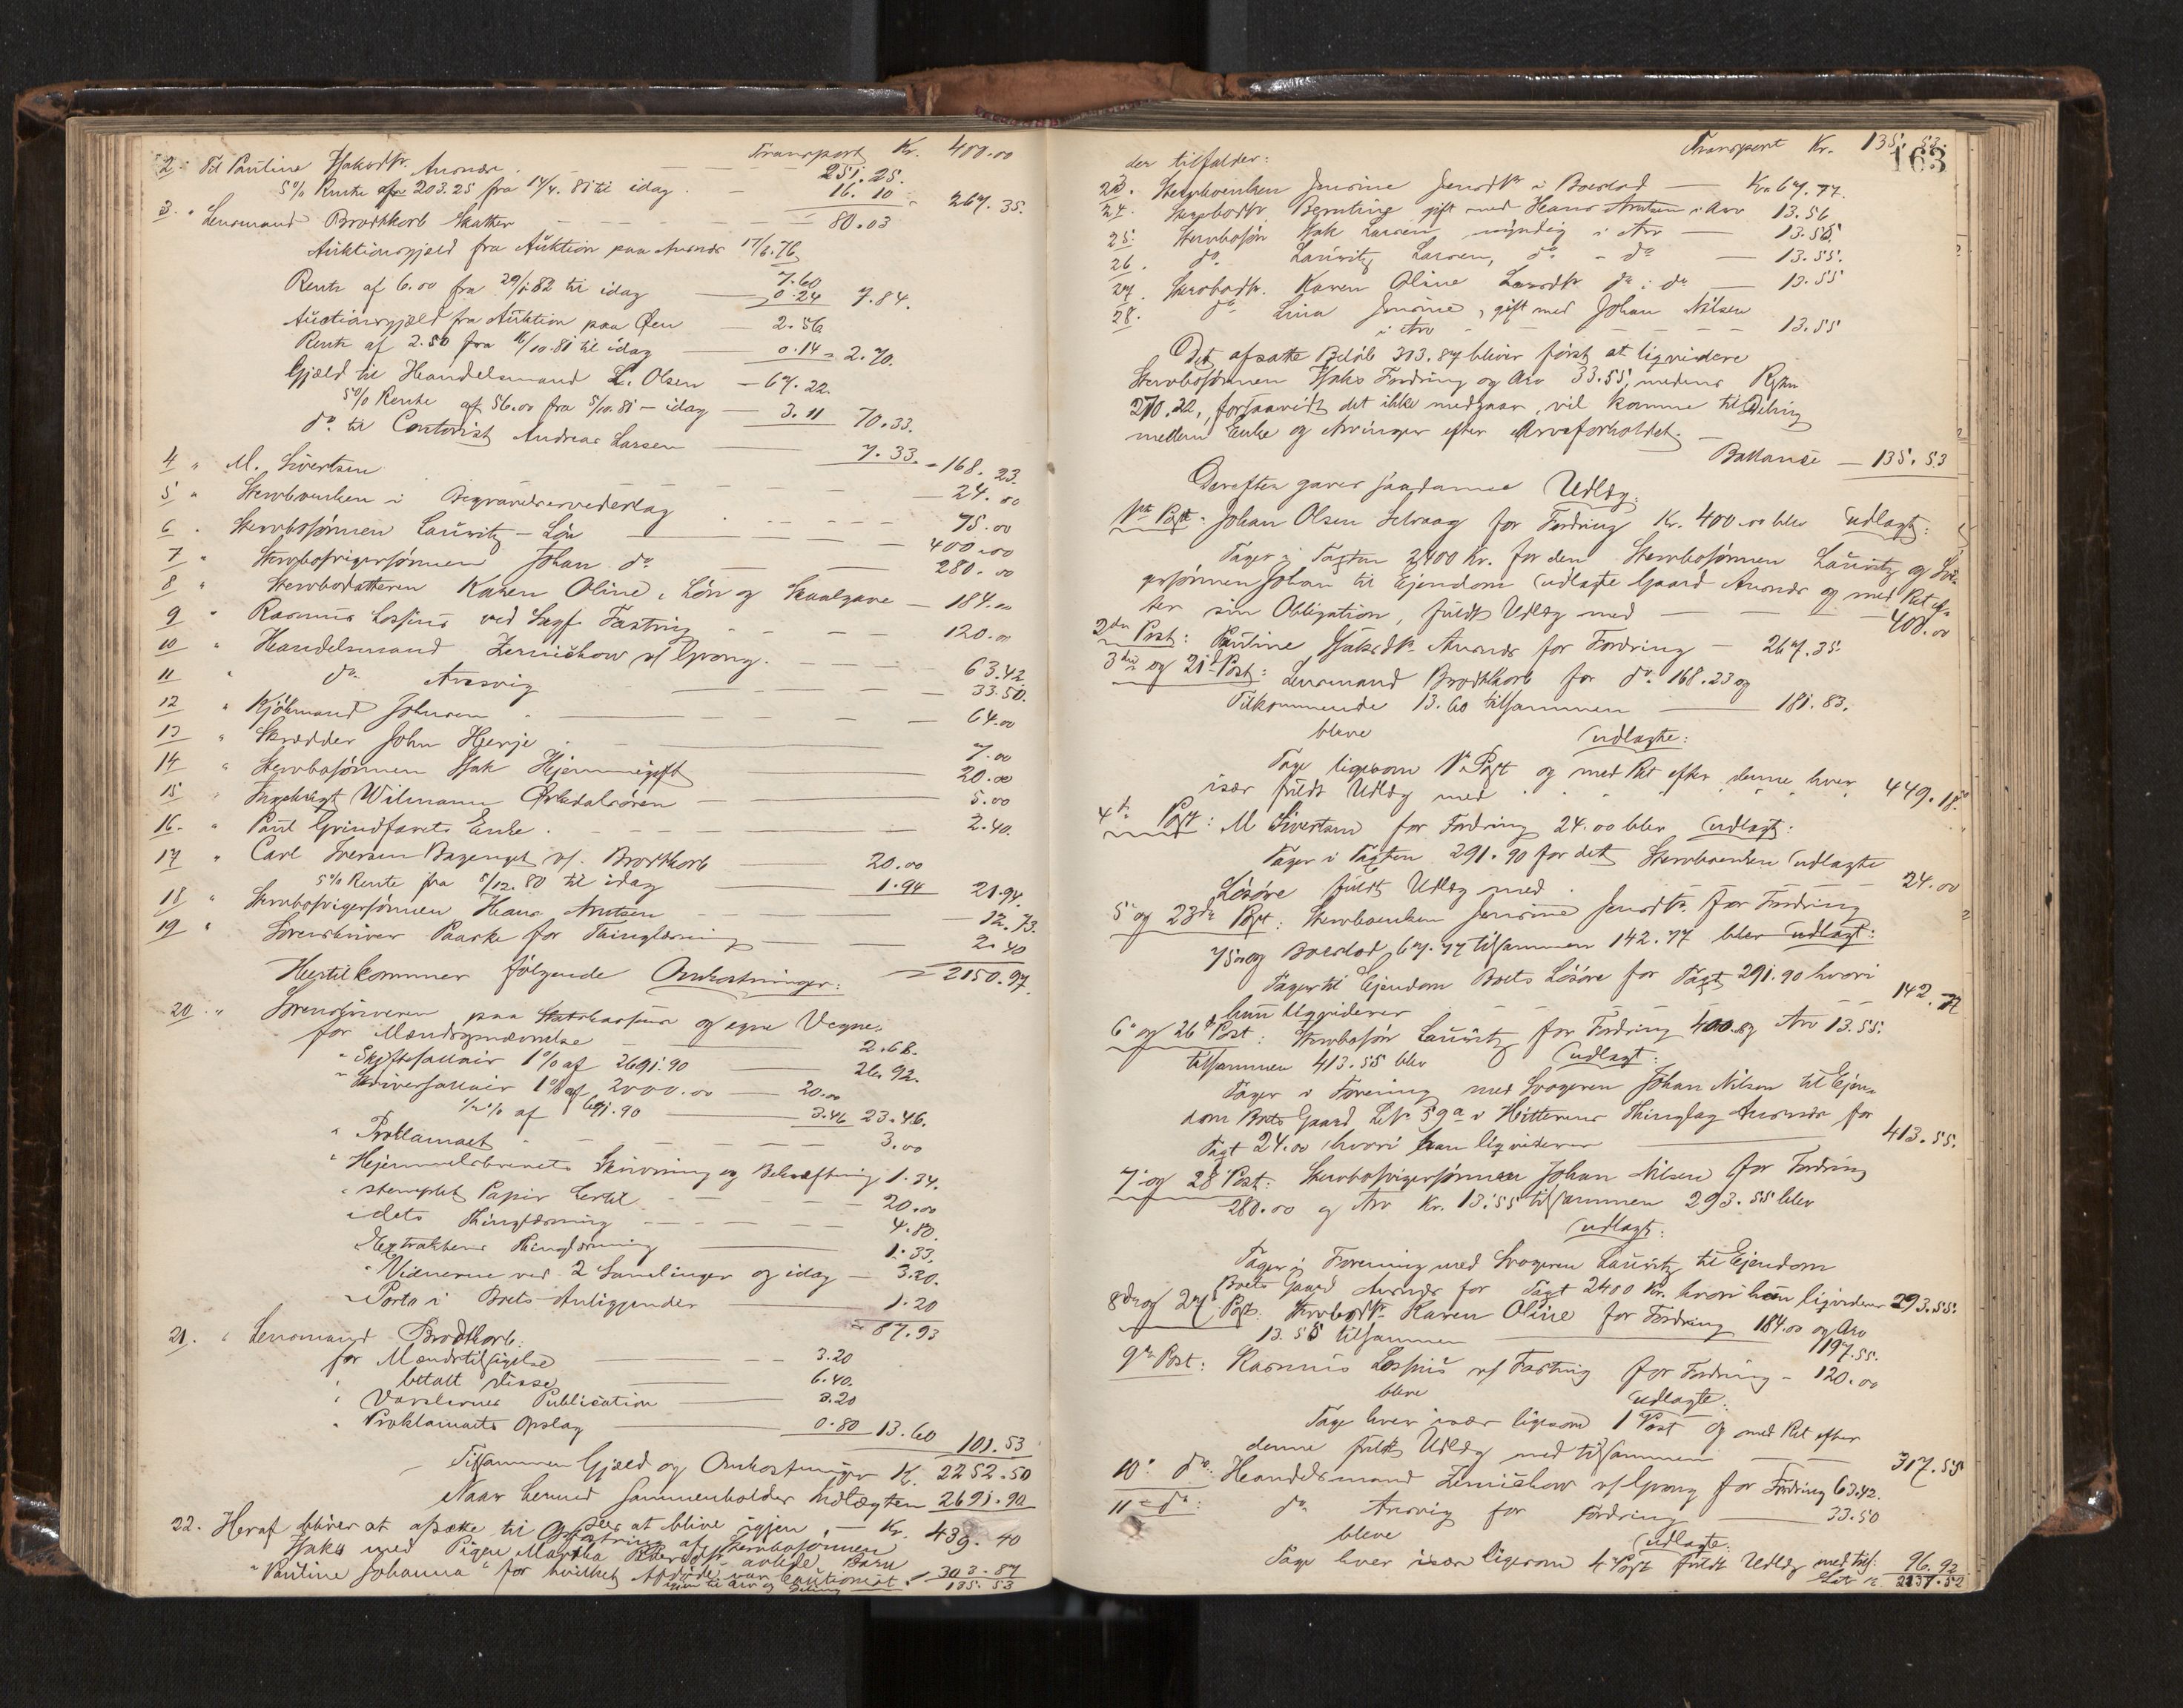 Transport Kr. 400.00
2. Til Pauline Isaksdtr. Ausnes - - - 251.25.
5% Rente af 203.25 fra 14/4.81 til idag - 16.10 = 267.35.
3. " Lensmand Brodtkorb Skatter - - - 80.03
Auktionsgjæld fra Auktion paa Ausnes 17/6.76
7.60
Rente af 6.00 fra 29/1.82 til idag — 0.24 7.84.
Auctionsgjæld fra Auktion paa Øen — 2.56
Rente af 2.50 fra 16/10.81 til idag — 0.14 = 2.70.
Gjæld til Handelsmand L. Olsen — 67.22
5% Rente af 56.00 fra 5/10.81 - idag — 3.11 70.33.
do. til Contorist Andreas Larsen — 7.33. = 168.23.
4 " M. Sivertsen - - - 24.00
5 " Stervboenken i Begravelsesvederlag - - - 75.00
6 . Stervbosønnen Lauritz - Løn — 400.00
7 " Stervbosvigersønnen Johan do. — 280.00
8 " Stervbodatteren Karen Oline, Løn og Skaalgave — 184.00
9 " Rasmus Lossius ved Sagf. Fasting - - - 120.00
10 " Handelsmand Zernichow v/ Grong. - - - 63.42
11 " do. Ansvig — 33.50.
12 " Kjøbmand Johnsen - - - 64.00
13 " Skrædder John Herje — 7.00
14 " Stervbosønnen Isak Hjemmegift — 20.00
15 " Wilmann Ørkedalsøren — 5.00
16. " Paul Grindfarets Enke - - - 2.40.
17 " Carl Iversen v/ Brodtkorb — 20.00
5% Rente fra 5/12.80 til idag — 1.94 21.94.
18 " Stervbosvigersønnen Hans Arntsen - - - 12.73.
19 " Sorenskriver Paaske for Thinglæsning — 2.40
Hertil kommer følgende Omkostninger: = 2150.97.
20 . " Sorenskriveren paa Statskassens og egne Vegne:
for Mændsopnævnelse — 2.68.
" Skiftesallair 1% af 2691.90 — 26.92.
" Skriversallair 1% af 2000.00 — 20.00
1/2% af 691.90 — 3.46 23.46.
" Proklamaet - - - 3.00
" Hjemmelsbrevets Skrivning og Bekræftning 1.34.
" stemplet Papir dertil - - - 20.00
" dets Thinglæsning - - - 4.80.
" Extraktens Thinglæsning — 1.33.
" Vidnerne ved 2 Samlinger og idag — 3.20.
" Porto i Boets Anliggender — 1.20
= 87.93
21. " Lensmand Brodtkorb:
for Mændstilsigelse — 3.20
" betalt disse — 6.40.
" Varslernes Publication — 3.20
" Proklamaets Opslag — 0.80 13.60 101.53
Tilsammen Gjæld og Omkostninger Kr. 2252.50
Naar hermed sammenholdes Indtægten 2691.90
sees at blive igjen, — Kr. 439.40
22. Heraf bliver at afsætte til Opfostring af Stervbosønnen
Isaks med Pigen Martha avlede Barn
"Pauline Johanna" for hvilket Afdøde var Cautionist. 303.87
igjen til Arv og Deling 135.53

163
Transport Kr. 135.53.
der tilfalder:
23. Stervboenken Jensine Jensdtr i Boeslod — Kr. 67.77.
24. Stervbodtr. Berntine gift med Hans Arntsen i Arv 13.56
25. Stervbosøn Isak Larsen, myndig i Arv — 13.55.
26. do. Lauritz Larsen, do - do — 13.55.
27. Stervbodtr. Karen Oline Larsdtr do i do — 13.55
28. do. Lina Jensine, gift med Johan Nilsen
i Arv - - - 13.55
Det afsatte Beløb 303.87 bliver først at liqvidere
Stervbosønnen Isaks Fordring og Arv 33.55, medens Resten
270.32, forsaavidt det ikke medgaar, vil komme til Deling
mellem Enke og Arvinger efter Arveforholdet. —
Ballance — 135.53
Derefter gaves saadanne Udlæg:
1ste Post: Johan Olsen Selvaag for Fordring Kr. 400.00 blev udlagt:
Tager i Taxten 2400 Kr. for den Stervbosønnen Lauritz og Svi-
gersønnen Johan til Ejendom udlagte Gaard Ausnes og med Ret ef-
ter sin Obligation, fuldt Udlæg med — 400.00
2den Post: Pauline Isaksdtr. Ausnes for Fordring — 267.35
3die og 21de Post: Lensmand Brodtkorb for do. 168.23 og
Tilkommende 13.60 tilsammen — 181.83.
bleve udlagte:
Tage ligesom 1ste Post og med Ret efter denne hver
især fuldt Udlæg med - - - 449.18.
4de Post: M. Sivertsen for Fordring 24.00 blev udlagt:
Tager i Taxten 291.90 for det Stervboenken udlagte
Løsøre fuldt Udlæg med - - - 24.00
5te og 23de Post: Stervboenken Jensine Jensdtr. for Fordring
75.00 og Boeslod 67.77 tilsammen 142.77 blev udlagt:
Tager til Ejendom Boets Løsøre for Taxt 291.90 hvori
hun liqviderer - - - 142.77
6te og 26de Post: Stervbosøn Lauritz for Fordring 400.00 og Arv 13.55.
tilsammen 413.55 blev udlagt:
Tager i Forening med Svogeren Johan Nilsen til Ejen-
dom Boets Gaard L.No. 59a i Hitterens Thinglag Ausnes for
Taxt 24.00 hvori han liqviderer — 413.55.
7de og 28 Post: Stervbosvigersønnen Johan Nilsen for Fordring
280.00 og Arv Kr. 13.55 tilsammen 293.55 blev
udlagt:
Tager i Forening med Svogeren Lauritz til Ejendom
Boets Gaard Ausnes for Taxt 2400 Kr. hvori han liqviderer 293.55.
8de og 27de Post. Stervbodtr. Karen Oline for Fordring 184.00 og Arv
13.55 tilsammen — 197.55.
9de Post: Rasmus Lossius v/ Fasting for Fordring - 120.00
bleve udlagte:
Tage hver især ligesom 1ste Post og med Ret efter
denne fuldt Udlæg med tilsammen — 317.55
10de do: Handelsmand Zernichow v/ Grong for Fordring 63.42.
11te do: do. Ansvig for Fordring — 33.50
bleve udlagte:
Tage hver især ligesom 4de Post fuldt Udlæg med tils. 96.92
Lat. Kr. 2137.52